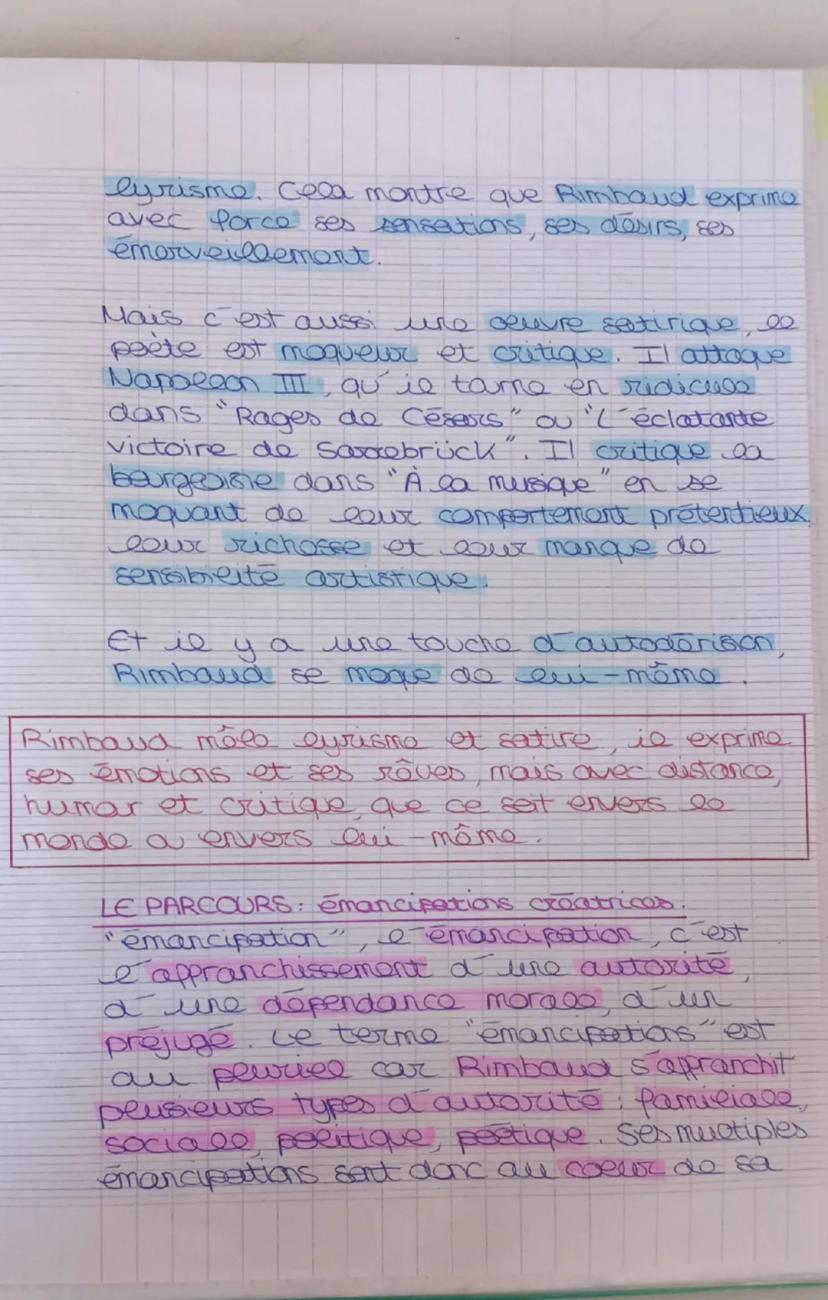 lyrisme. Cela montre que Rimbaud exprime
avec force ses sensations, ses désirs, ses
émerveillement.
Mais c'est aussi une oeuvre satirique, le
poète est moqueur et critique. Il attaque
Napoléon III, qu'il tourne en ridicule
dans "Rages de Césars" ou "L'éclatante
victoire de Sarrebrück". Il critique la
bourgeoisie dans "À la musique" en se
moquant de leur comportement prétentieux,
leur richesse et leur manque de
sensibilité artistique.
Et il y a une touche d'autodérison,
Rimbaud se moque de lui-même.
Rimbaud mêle lyrisme et satire, il exprime
ses émotions et ses rêves, mais avec distance,
humour et critique, que ce soit envers le
monde ou envers lui-même.
LE PARCOURS: émancipations créatrices.
"émancipation", l'émancipation, c'est
l'affranchissement d'une autorité,
d'une dépendance morale, d'un
préjugé. Le terme "émancipations" est
au pluriel car Rimbaud s'affranchit
plusieurs types d'autorité: familiale,
sociale, politique, poétique. Ses multiples
émancipations sont donc au coeur de sa